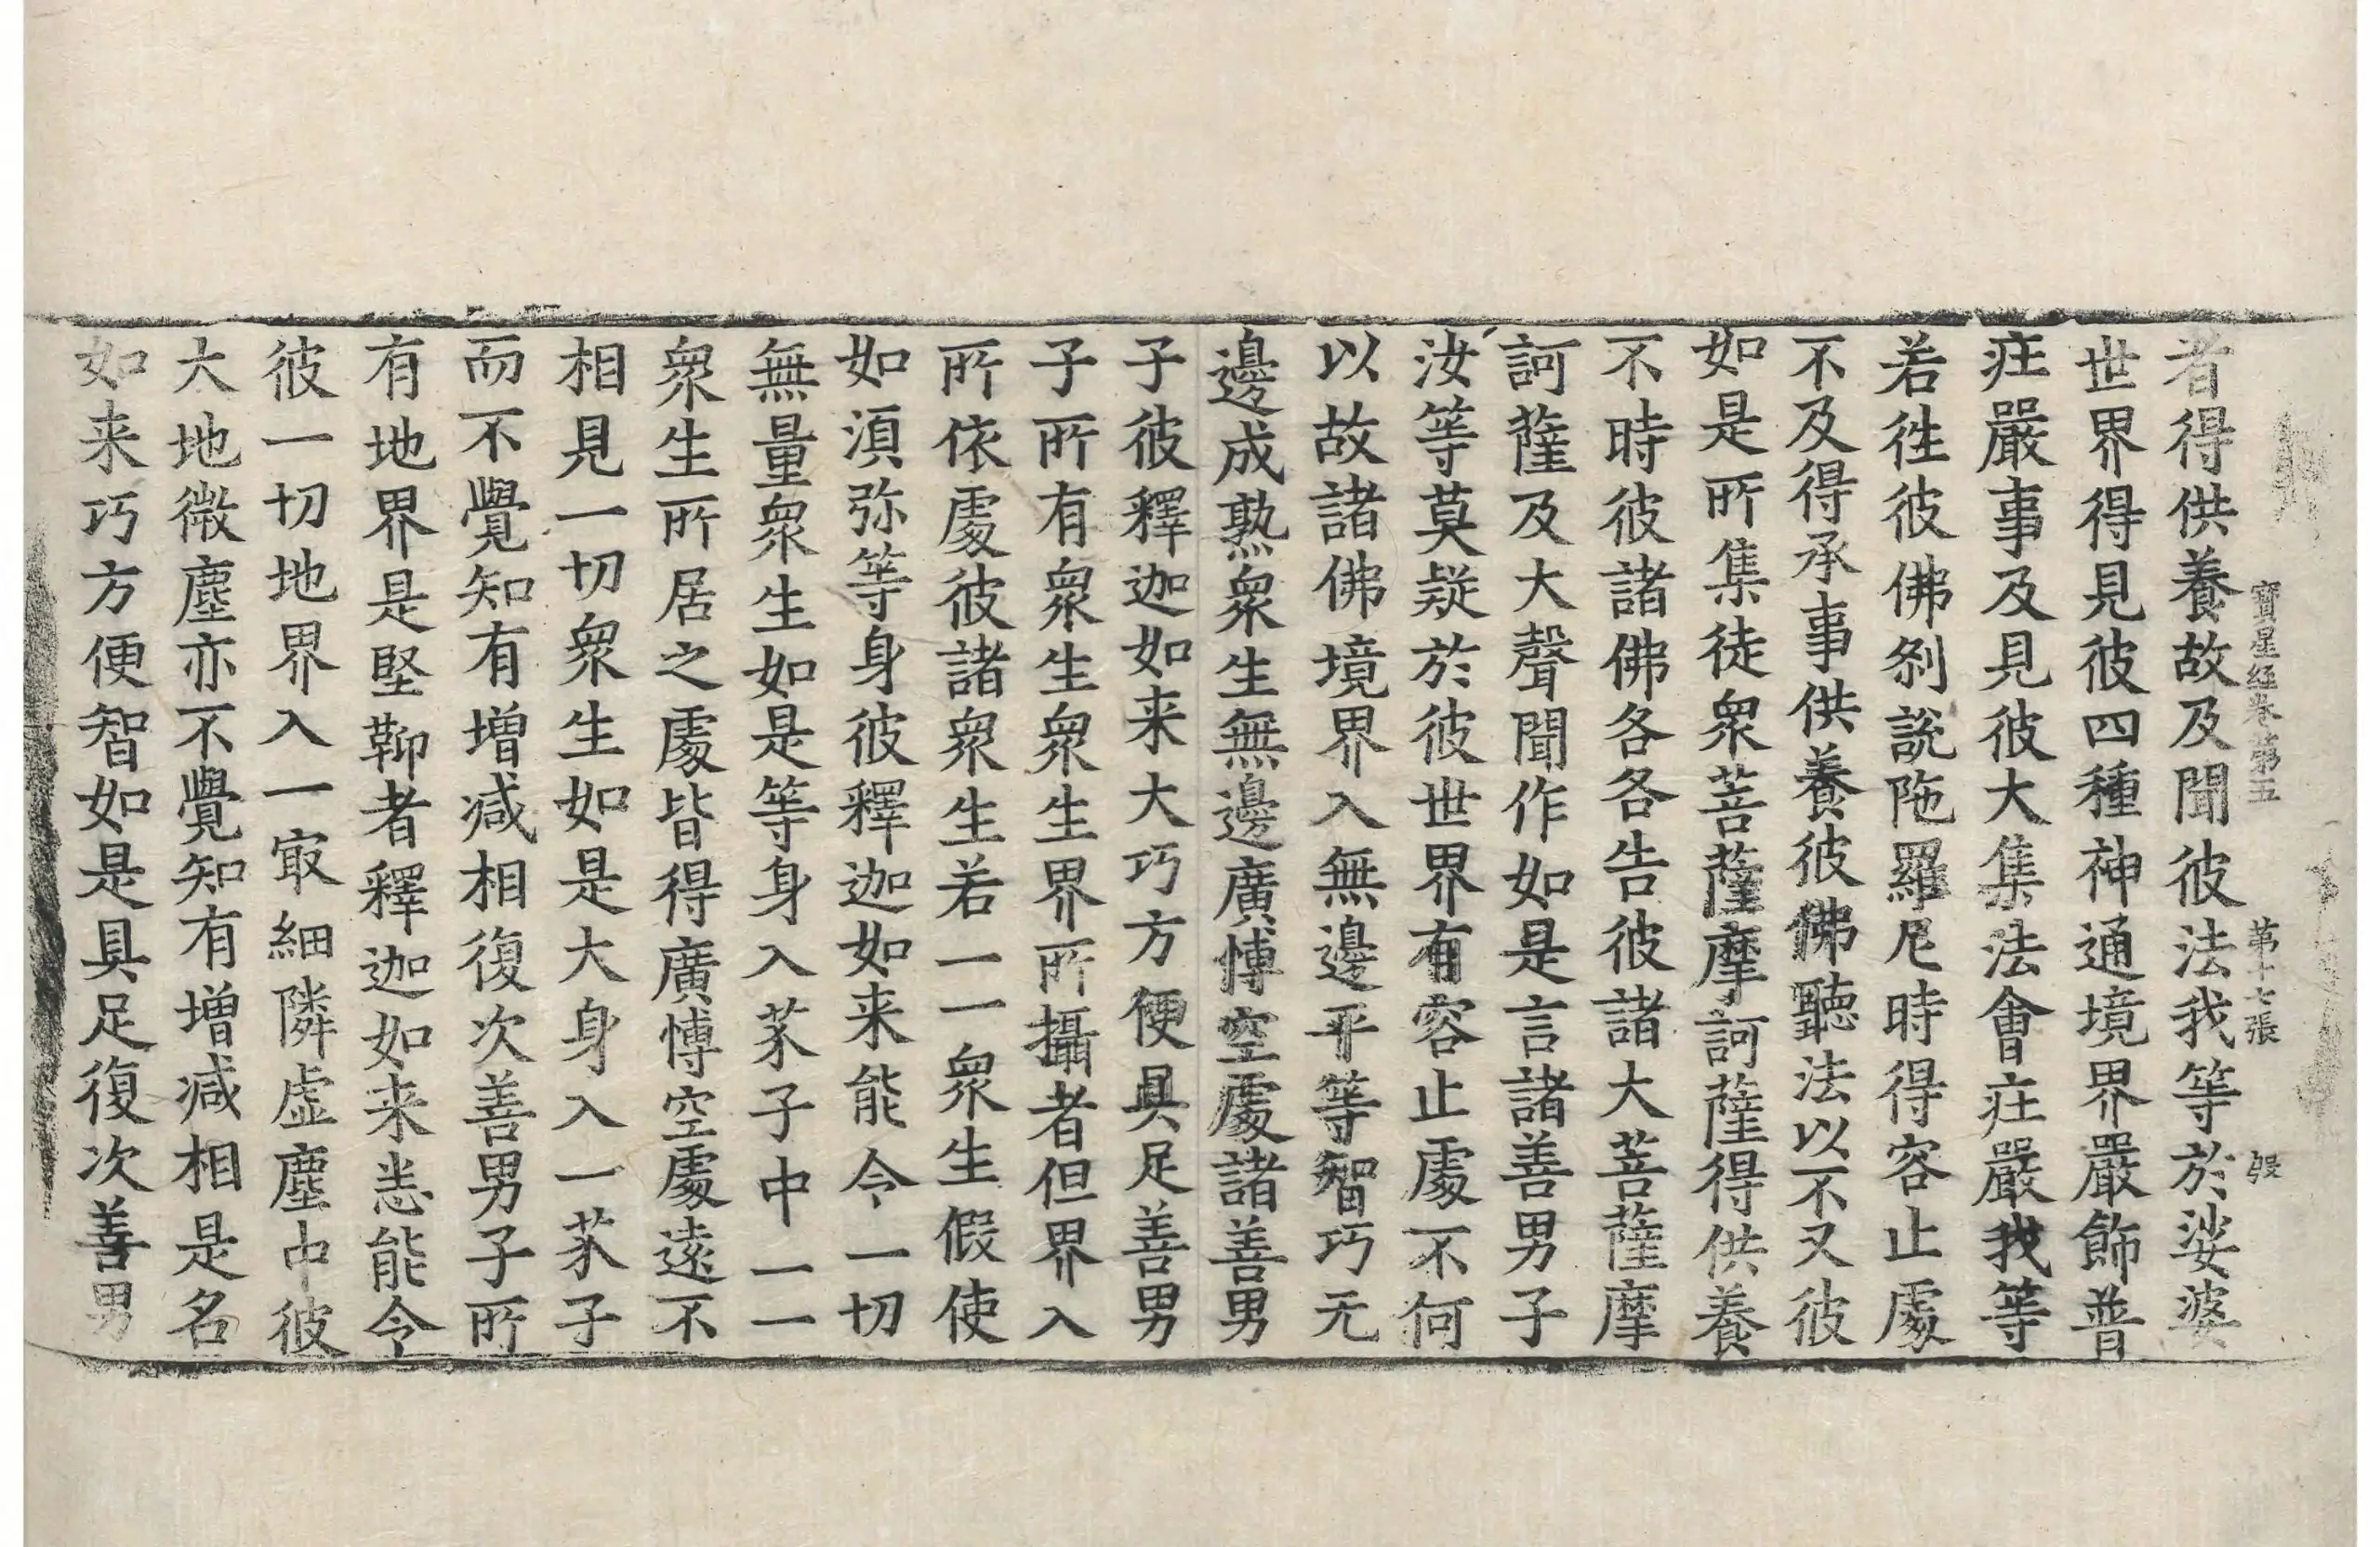 寶星経卷第五 第十七張 殷
者得供養故及聞彼法我等於娑婆
世界得見彼四種神通境界嚴飾普
庄嚴事及見彼大集法會庄嚴我等
若徃彼佛刹說陁羅尼時得容止處
不及得承事供養彼佛聽法以不又彼
如是所集徒衆菩薩摩訶薩得供養
不時彼諸佛各各告彼諸大菩薩摩
訶薩及大聲聞作如是言諸善男子
汝等莫疑於彼世界有容止處不何
以故諸佛境界入無邊平等智巧无
邊成熟衆生無邊廣愽空處諸善男
子彼釋迦如来大巧方便具足善男
子所有衆生衆生界所攝者但界入
所依處彼諸衆生若一一衆生假使
如湏弥等身彼釋迦如来能令一切
無量衆生如是等身入芥子中一一
衆生所居之處皆得廣愽空處遠不
相見一切衆生如是大身入一芥子
而不覺知有增减相復次善男子所
有地界是堅鞕者釋迦如来悉能令
彼一切地界入一㝡細隣虚塵中彼
大地微塵亦不覺知有增减相是名
如来巧方便智如是具足復次善男